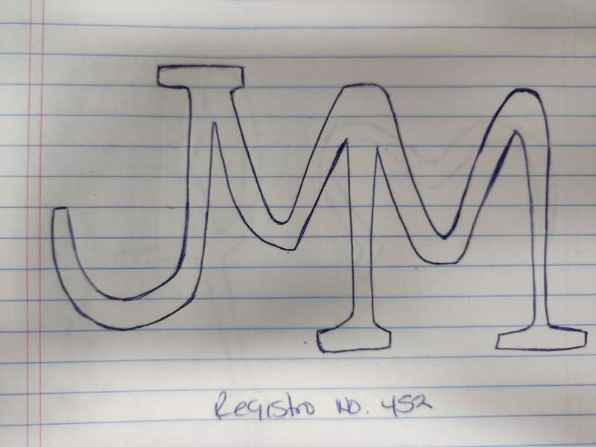 JMM
Registro No. 452